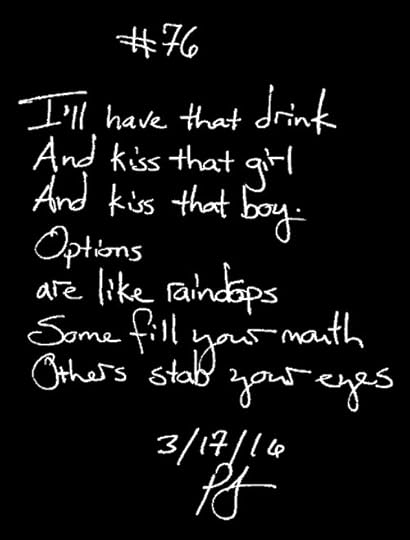 #76
I'll have that drink
And kiss that girl
And kiss that boy.
Options
are like raindops
Some fill your mouth
Others stab your eyes
3/17/16